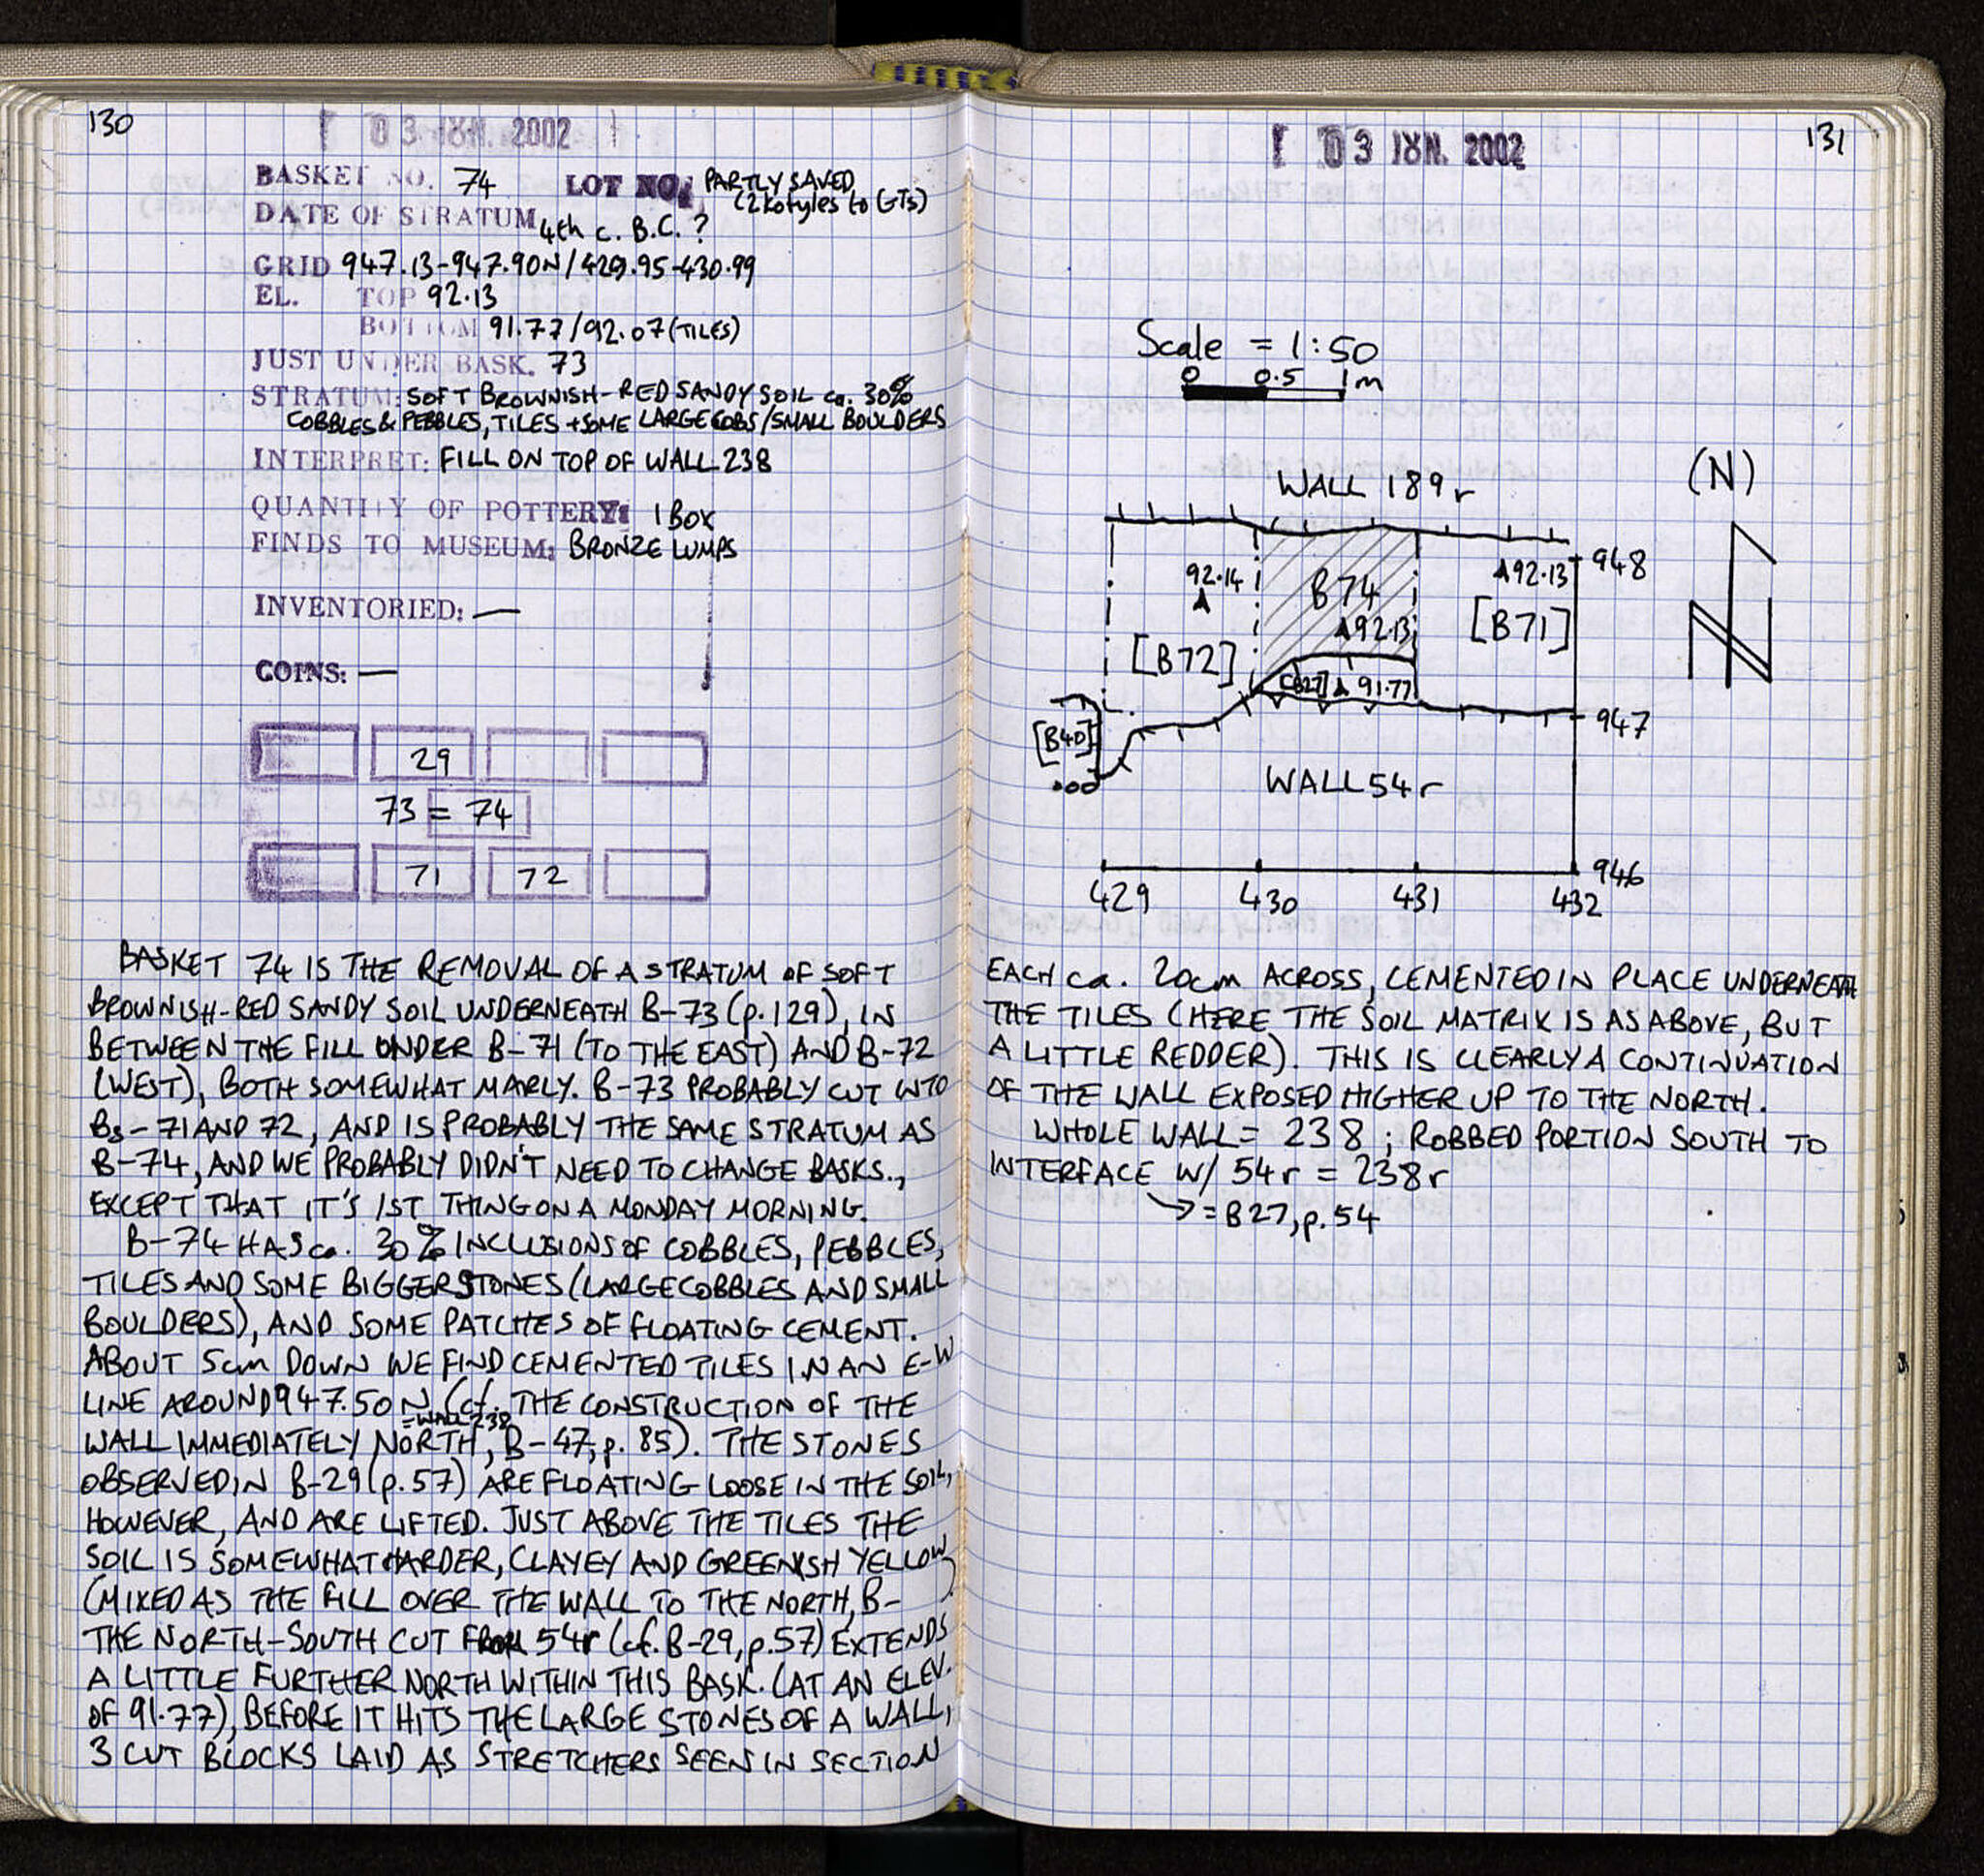 130
03 JUN. 2002
BASKET NO. 74 LOT NO. PARTLY SAVED
(2 kotyles to GTs)
DATE OF STRATUM 4th c. B.C. ?
GRID 947.13-947.90N/429.95-430.99
EL. TOP 92.13
BOTTOM 91.77/92.07 (TILES)
JUST UNDER BASK. 73
STRATUM: SOFT BROWNISH-RED SANDY SOIL ca. 30%
COBBLES & PEBBLES, TILES + SOME LARGE COBS/SMALL BOULDERS
INTERPRET: FILL ON TOP OF WALL 238
QUANTITY OF POTTERY: 1 BOX
FINDS TO MUSEUM: BRONZE LUMPS
INVENTORIED: —
COINS: —
29
73 = 74
71 72
BASKET 74 IS THE REMOVAL OF A STRATUM OF SOFT
BROWNISH-RED SANDY SOIL UNDERNEATH B-73 (p.129), IN
BETWEEN THE FILL UNDER B-71 (TO THE EAST) AND B-72
(WEST), BOTH SOMEWHAT MARLY. B-73 PROBABLY CUT INTO
Bs-71 AND 72, AND IS PROBABLY THE SAME STRATUM AS
B-74, AND WE PROBABLY DIDN'T NEED TO CHANGE BASKS.,
EXCEPT THAT IT'S 1ST THING ON A MONDAY MORNING.
B-74 HAS ca. 30% INCLUSIONS OF COBBLES, PEBBLES,
TILES AND SOME BIGGER STONES (LARGE COBBLES AND SMALL
BOULDERS), AND SOME PATCHES OF FLOATING CEMENT.
ABOUT 5cm DOWN WE FIND CEMENTED TILES IN AN E-W
LINE AROUND 947.50 N (cf. THE CONSTRUCTION OF THE
=WALL 238
WALL IMMEDIATELY NORTH, B-47, p. 85). THE STONES
OBSERVED IN B-29 (p.57) ARE FLOATING LOOSE IN THE SOIL,
HOWEVER, AND ARE LIFTED. JUST ABOVE THE TILES THE
SOIL IS SOMEWHAT HARDER, CLAYEY AND GREENISH YELLOW
(MIXED AS THE FILL OVER THE WALL TO THE NORTH, B- ).
THE NORTH-SOUTH CUT FROM 54r (cf. B-29, p.57) EXTENDS
A LITTLE FURTHER NORTH WITHIN THIS BASK. (AT AN ELEV.
OF 91.77), BEFORE IT HITS THE LARGE STONES OF A WALL,
3 CUT BLOCKS LAID AS STRETCHERS SEEN IN SECTION
03 JUN. 2002
131
Scale = 1:50
0 0.5 1m
(N)
WALL 189r
92.14
B74
92.13
948
92.13
[B72]
[B71]
[B27] 91.77
[B40]
947
WALL 54r
946
429 430 431 432
EACH ca. 20cm ACROSS, CEMENTED IN PLACE UNDERNEATH
THE TILES (HERE THE SOIL MATRIX IS AS ABOVE, BUT
A LITTLE REDDER). THIS IS CLEARLY A CONTINUATION
OF THE WALL EXPOSED HIGHER UP TO THE NORTH.
WHOLE WALL = 238 ; ROBBED PORTION SOUTH TO
INTERFACE w/ 54r = 238r
→ = B27, p.54